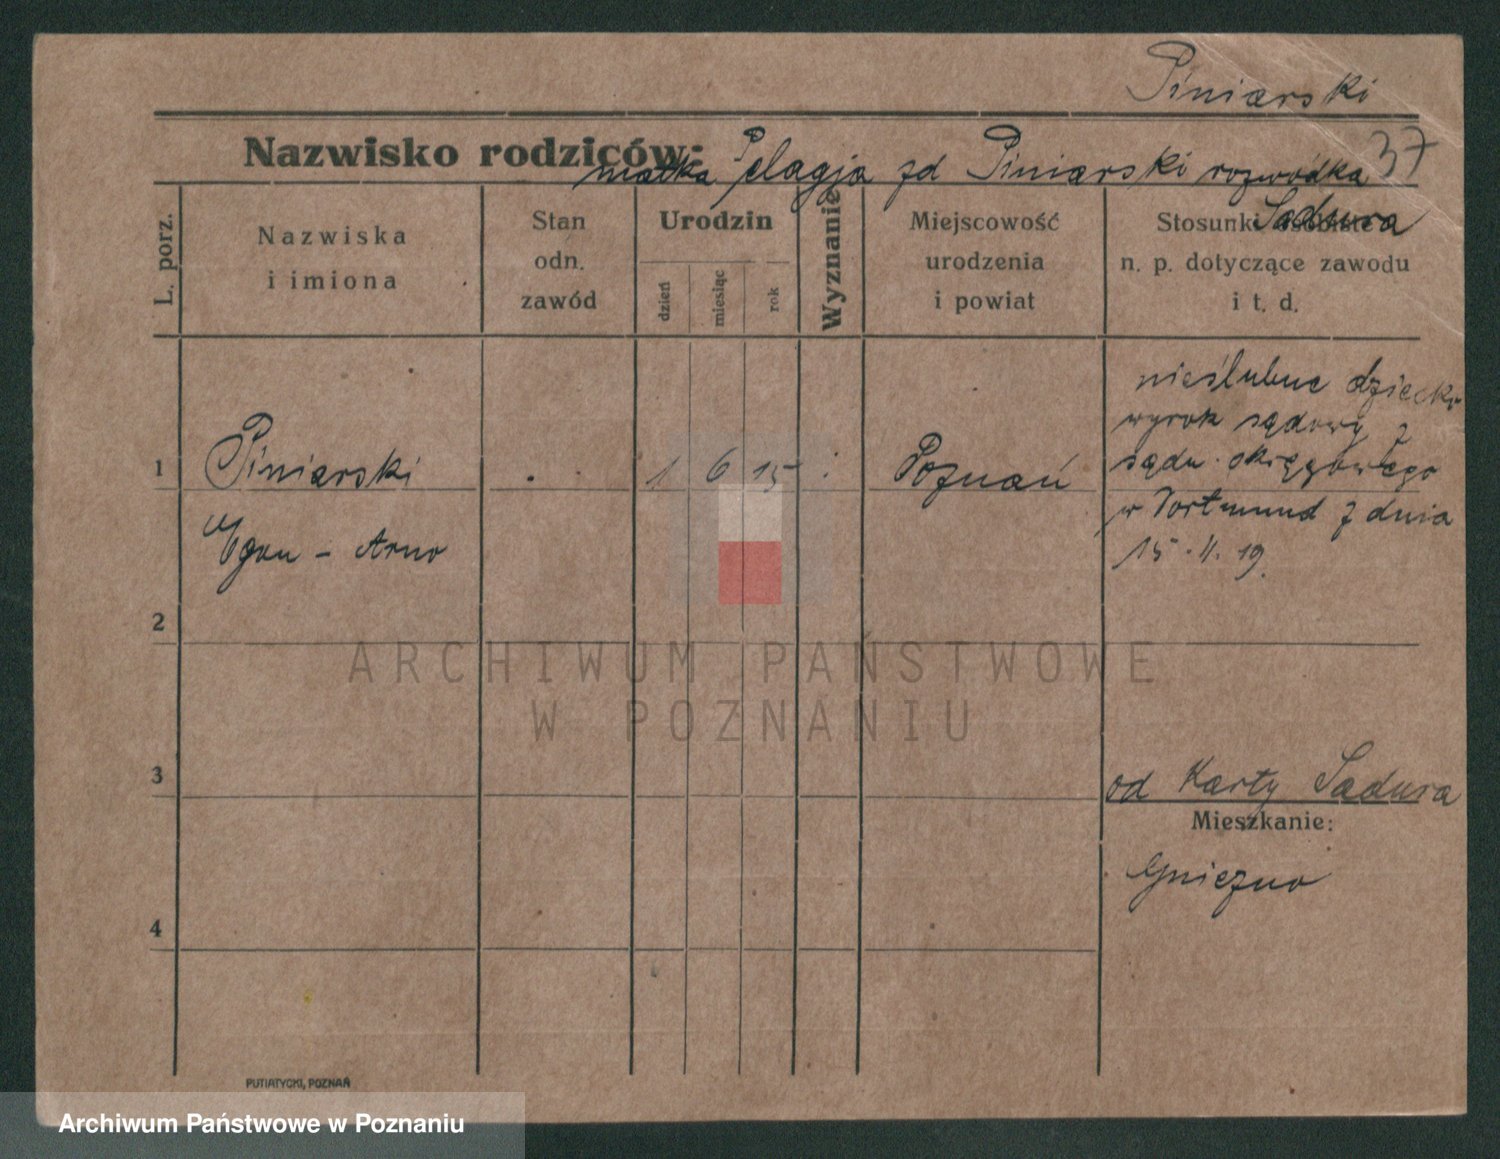 Piniarski
37
Nazwisko rodziców:
matka Pelagja zd Piniarski rozwódka
Sadura
L. porz.
Nazwiska
i imiona
Stan
odn.
zawód
Urodzin
dzień
miesiąc
rok
Wyznanie
Miejscowość
urodzenia
i powiat
Stosunki
n. p. dotyczące zawodu
i t. d.
nieślubne dziecko
wyrok sądowy z
1 Piniarski 1 6 15 Poznań sądu okręgowego
w Dortmund z dnia
Egon - Arno
15. 4. 19.
2
ARCHIWUM PAŃSTWOWE
W POZNANIU
3
od Karty Sadura
Mieszkanie:
Gniezno
4
PUTIATYCKI, POZNAŃ
Archiwum Państwowe w Poznaniu